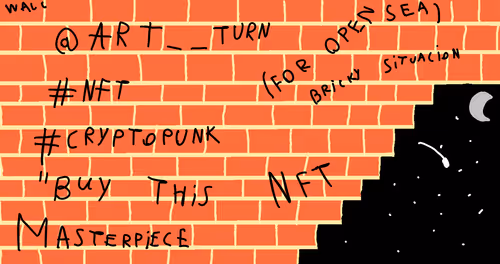 WALL
@ART__TURN
(FOR OPEN SEA)
BRICKY SITUACION
#NFT
#CRYPTOPUNK
"BUY THIS NFT
MASTERPIECE